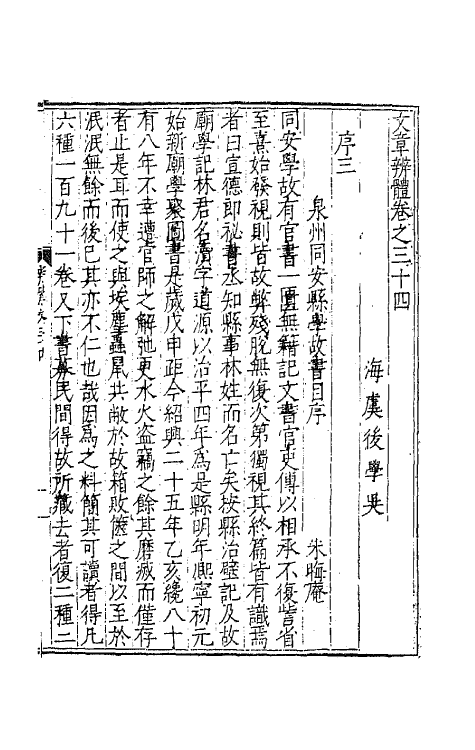 文章辨體卷之三十四
海虞後學吳
序三
泉州同安縣學故書目序　朱晦庵
同安學故有官書一匱無籍記文書官吏傳以相承不復訾省
至熹始發視則皆故弊殘脫無復次第獨視其終篇皆有識焉
者曰宣德郎祕書丞知縣事林姓而名亡矣按縣治壁記及故
廟學記林君名瀆字道源以治平四年為是縣明年熈寧初元
始新廟學聚圖書是歲戊申距今紹興二十五年乙亥纔八十
有八年不幸遭官師之解弛更水火盜竊之餘其磨滅而僅存
者止是耳而使之與埃塵蟲鼠共敝於故箱敗篋之間以至於
泯泯無餘而後已其亦不仁也哉因為之料簡其可讀者得凡
六種一百九十一卷又下書募民間得故所藏去者復二種二